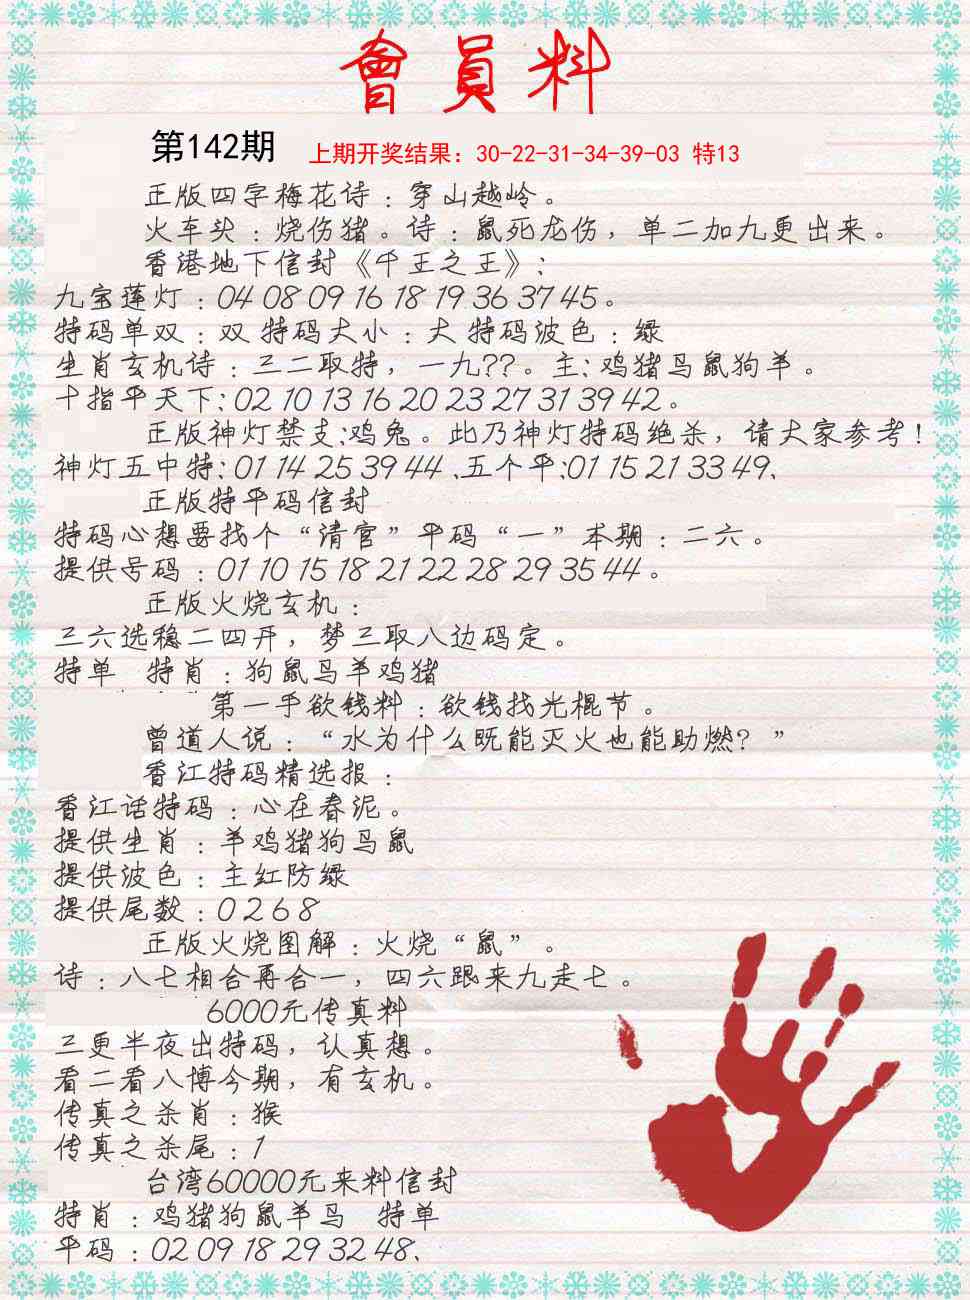 會員料
第142期 上期开奖结果：30-22-31-34-39-03 特13
正版四字梅花诗：穿山越岭。
火车头：烧伤猪。诗：鼠死龙伤，单二加九更出来。
香港地下信封《千王之王》：
九宝莲灯：04 08 09 16 18 19 36 37 45。
特码单双：双 特码大小：大 特码波色：绿
生肖玄机诗：三二取特，一九??。主：鸡猪马鼠狗羊。
十指平天下：02 10 13 16 20 23 27 31 39 42。
正版神灯禁支：鸡兔。此乃神灯特码绝杀，请大家参考！
神灯五中特：01 14 25 39 44 、五个平：01 15 21 33 49、
正版特平码信封
特码心想要找个“请官”平码“一”本期：二六。
提供号码：01 10 15 18 21 22 28 29 35 44。
正版火烧玄机：
三六选稳二四开，梦三取八边码定。
特单 特肖：狗鼠马羊鸡猪
第一手欲钱料：欲钱找光棍节。
曾道人说：“水为什么既能灭火也能助燃？”
香江特码精选报：
香江话特码：心在春泥。
提供生肖：羊鸡猪狗马鼠
提供波色：主红防绿
提供尾数：0 2 6 8
正版火烧图解：火烧“鼠”。
诗：八七相合再合一，四六跟来九走七。
6000元传真料
三更半夜出特码，认真想。
看二看八博今期，有玄机。
传真之杀肖：猴
传真之杀尾：1
台湾60000元来料信封
特肖：鸡猪狗鼠羊马 特单
平码：02 09 18 29 32 48、